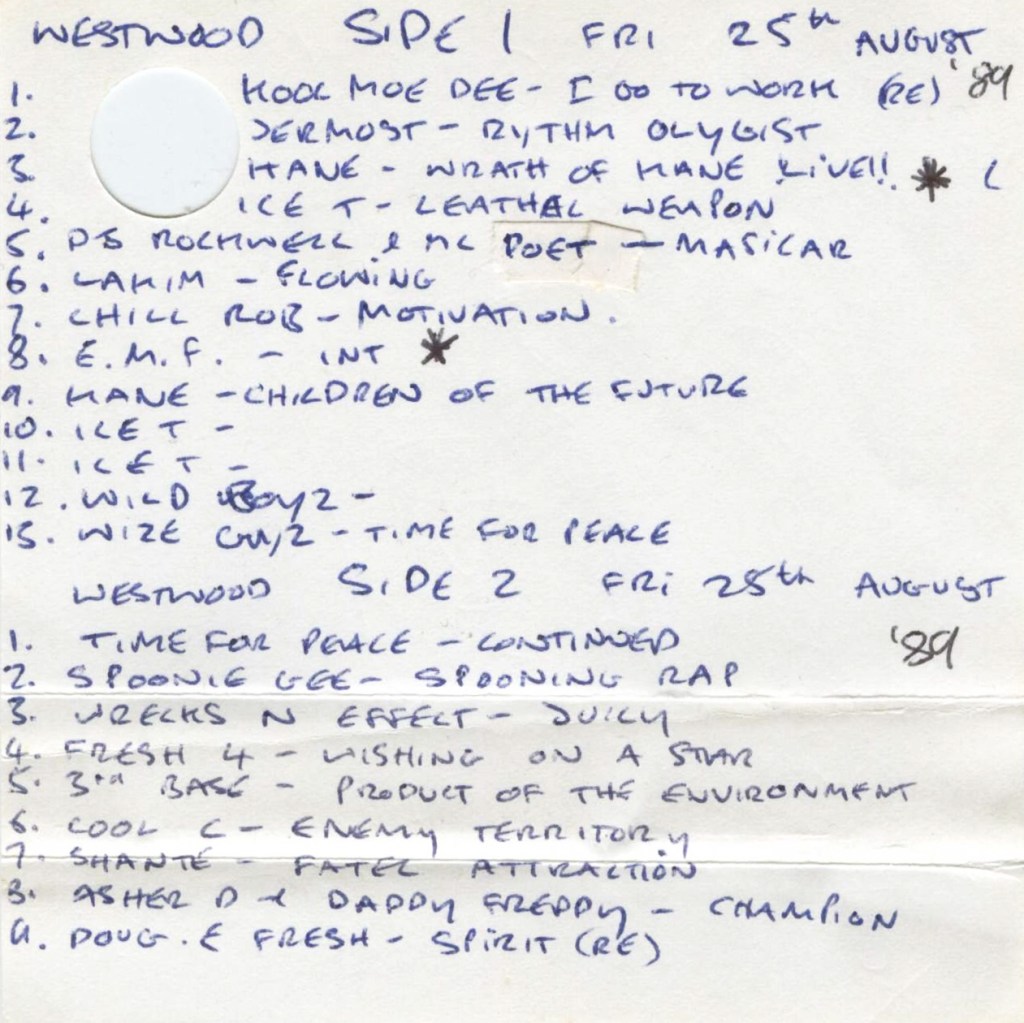 WESTWOOD SIDE 1 FRI 25th AUGUST '89
1. KOOL MOE DEE - I GO TO WORK (RE)
2. DERMOST - RYTHM OLYGIST
3. KANE - WRATH OF KANE LIVE!! * (
4. ICE T - LEATHAL WEAPON
5. DJ ROCKWELL & MC POET - MASICAR
6. LAKIM - FLOWING
7. CHILL ROB - MOTIVATION.
8. E.M.F. - INT *
9. KANE - CHILDREN OF THE FUTURE
10. ICE T -
11. ICE T -
12. WILD BOYZ -
13. WIZE GUYZ - TIME FOR PEACE
WESTWOOD SIDE 2 FRI 25th AUGUST '89
1. TIME FOR PEACE - CONTINUED
2. SPOONIE GEE - SPOONING RAP
3. WRECKS N EFFECT - JUICY
4. FRESH 4 - WISHING ON A STAR
5. 3rd BASE - PRODUCT OF THE ENVIRONMENT
6. COOL C - ENEMY TERRITORY
7. SHANTE - FATEL ATTRACTION
8. ASHER D & DADDY FREDDY - CHAMPION
9. DOUG.E FRESH - SPIRIT (RE)